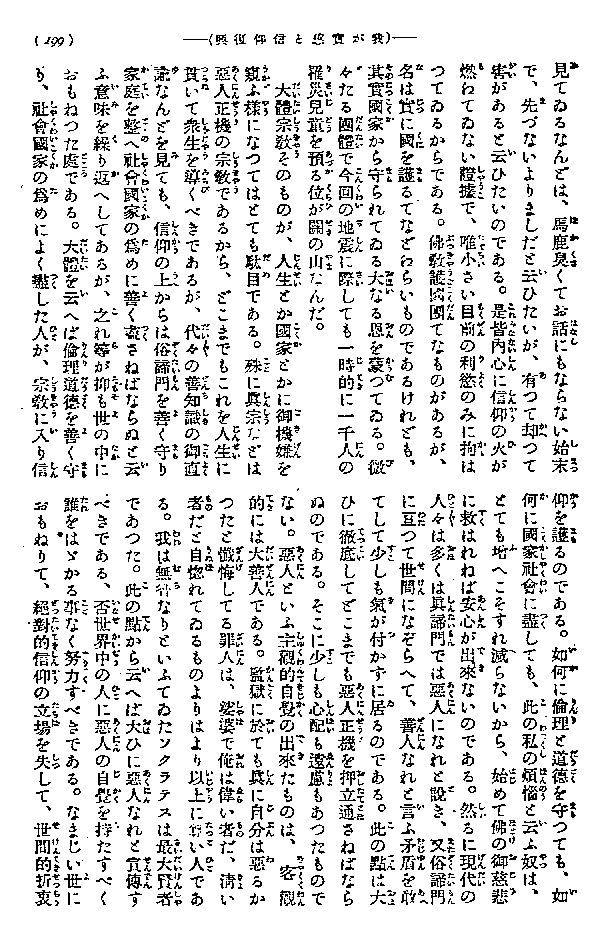 (199)
——(興復仰信と悠實が我)——
見てゐるなんどは、馬鹿臭くてお話にもならない始末
で、先づないよりましだと云ひたいが、有つて却つて
害があると云ひたいのである。是皆內心に信仰の火が
燃わてゐない證據で、唯小さい目前の利慾のみに拘は
つてゐるからである。佛敎護國團てなものがあるが、
名は實に國を護るてなどわらいものであるけれども、
其實國家から守られてゐる大なる恩を蒙つてゐる。微
々たる團體で今回の地震に際しても一時的に一千人の
罹災兒童を預る位が關の山なんだ。
大體宗敎そのものが、人生とか國家とかに御機嫌を
窺ふ樣になつてはとても駄目である。殊に眞宗などは
惡人正機の宗敎であるから、どこまでもこれを人生に
貫いて衆生を導くべきであるが、代々の善知識の御直
諭なんどを見ても、信仰の上からは俗諦門を善く守り
家庭を整へ社會國家の爲めに善く盡さねばならぬと云
ふ意味を繰り返へしてあるが、之れ等が抑も世の中に
おもねつた處である。大體を云へば倫理道德を善く守
り、社會國家の爲めによく盡した人が、宗敎に入り信
仰を護るのである。如何に倫理と道德を守つても、如
何に國家社會に盡しても、此の私の煩惱と云ふ奴は、
とても增へこそすれ減らないから、始めて佛の御慈悲
に救はれねば安心が出來ないのである。然るに現代の
人々は多くは眞諦門では惡人になれと說き、又俗諦門
に亙つて世間になぞらへて、善人なれと言ふ矛盾を敢
てして少しも氣が付かずに居るのである。此の點は大
ひに徹底してどこまでも惡人正機を押立通さねばなら
ぬのである。そこに少しも心配も遠慮もあつたもので
ない。惡人といふ主觀的自覺の出來たものは、客觀
的には大善人である。監獄に於ても眞に自分は惡るか
つたと懺悔してる罪人は、娑婆で俺は偉い者だ、淸い
者だと自惚れてゐるものよりはより以上に尊い人であ
る。我は無智なりといふてゐたソクラテスは最大賢者
であつた。此の點から云へば大ひに惡人なれと宣傳す
べきである、否世界中の人に惡人の自覺を持たすべく
誰をはゞかる事なく努力すべきである。なまじい世に
おもねりて、絕對的信仰の立場を失して、世間的折衷